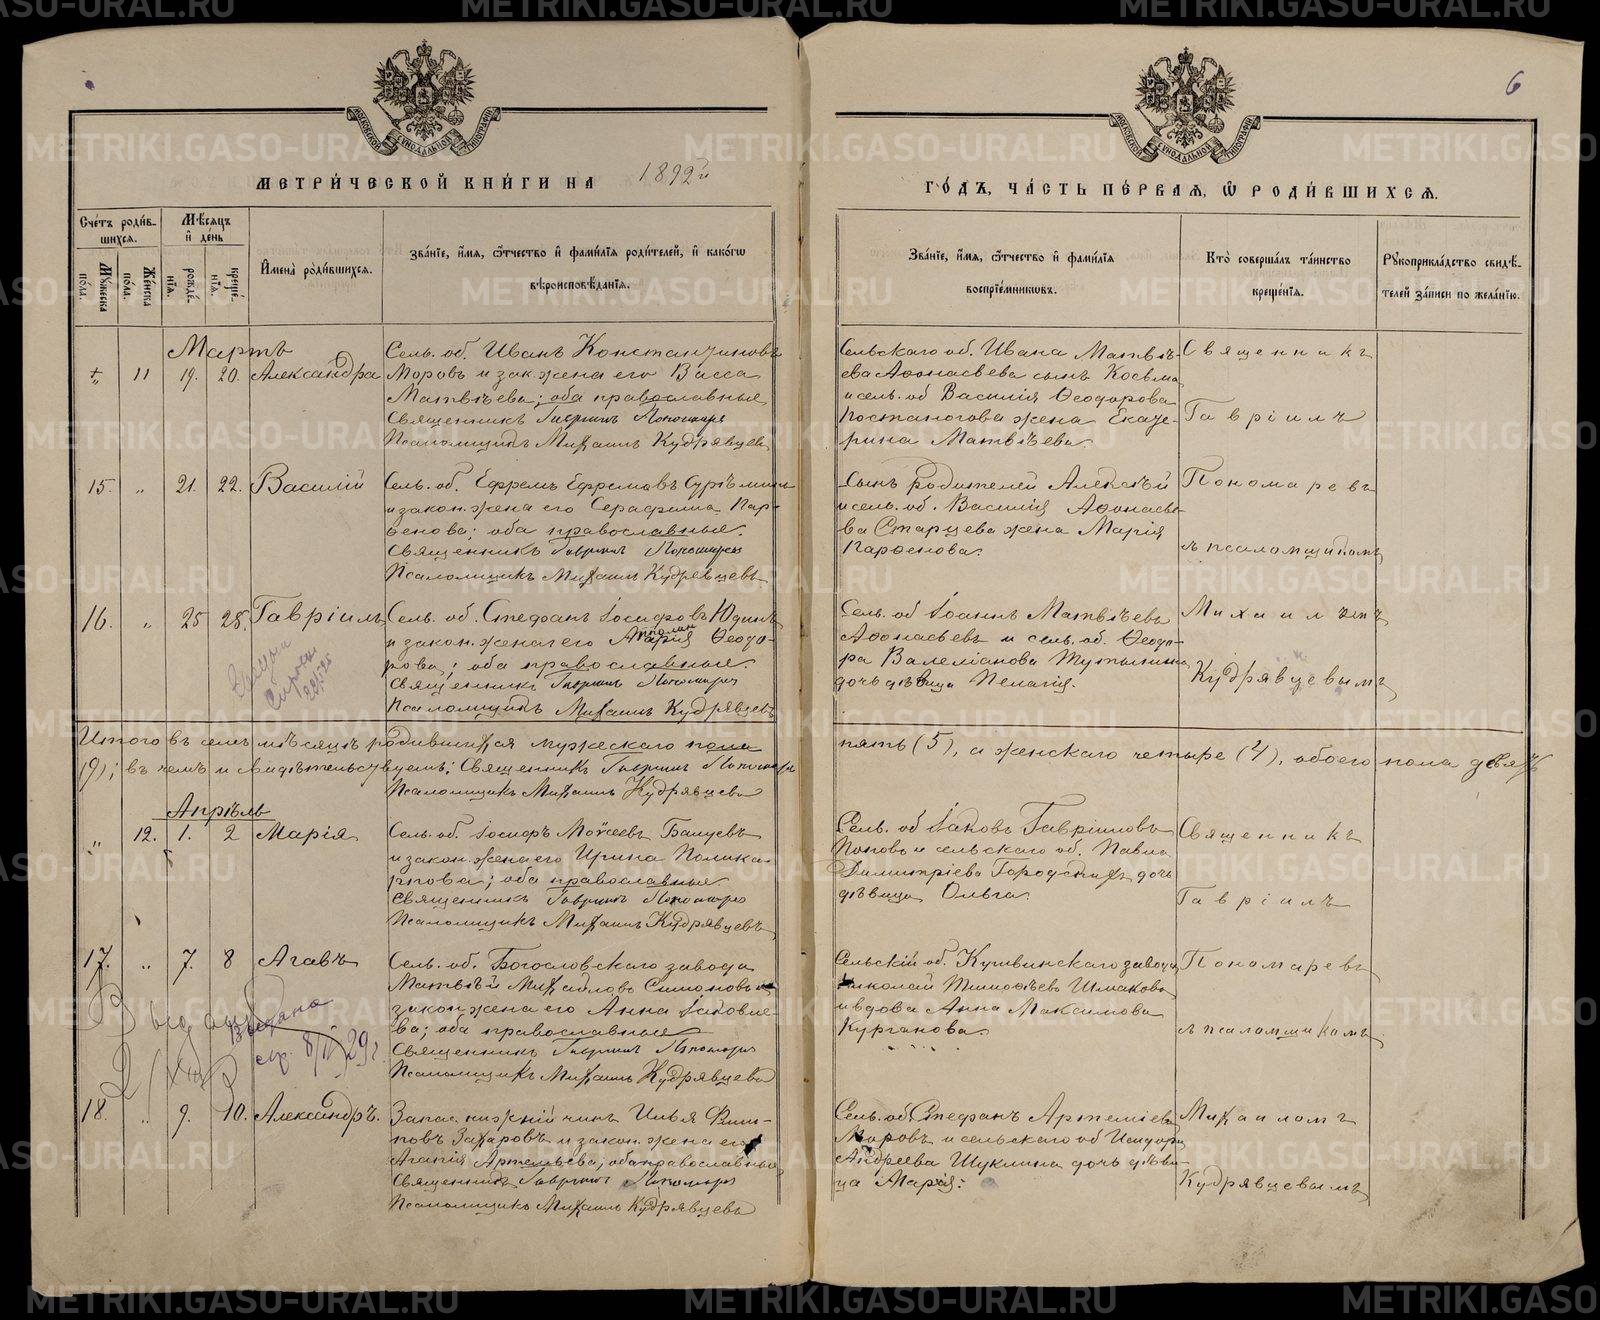 6
МЕТРИ́ЧЕСКОЙ КНИ́ГИ НА 1892й
ГО́ДЪ, ЧА́СТЬ ПЕ́РВАЯ, Ѽ РОДИ́ВШИХСЯ.
Сче́тъ роди́в-
шихся.
Мѣ́сяцъ
и҆ де́нь
Му́жеска
по́ла.
Же́нска
по́ла.
рожде́-
нїя.
креще́-
нїя.
И҆мена̀ роди́вшихся.
Зва́нїе, и҆́мя, ѻ҆́тчество и҆ фами́лїя роди́телей, и҆ како́гѡ
вѣроисповѣ́данїя.
Зва́нїе, и҆́мя, ѻ҆́тчество и҆ фами́лїя
воспрїе́мникѡвъ.
Кто̀ соверша́лъ та́инство
креще́нїя.
Рꙋкоприкла́дство свидѣ́-
телей за́писи по жела́нїю.
Мартъ
11 19. 20. Александра
Сель. об. Иванъ Константиновъ
Моровъ и зак. жена его Васса
Матвѣева; оба православные
Священникъ Гавриилъ Пономаревъ
Псаломщикъ Михаилъ Кудрявцевъ
Сельскаго об. Ивана Матвѣ-
ева Аѳонасьева сынъ Косьма
и сель. об Василія Ѳеодорова
Постаногова жена Екате-
рина Матвѣева.
Священникъ
Гавріилъ
15. „ 21. 22. Василій
Сель. об. Ефремъ Ефремовъ
и закон. жена его Серафима Пар-
ѳенова; оба православные.
Священникъ Гавриилъ Пономаревъ
Псаломщикъ Михаилъ Кудрявцевъ
Сынъ родителей Алексѣй
и сель. об. Василія Аѳонась-
ва Старцева жена Марія
Парѳенова.
Пономаревъ
съ псаломщикомъ
16. „ 25 28. Гавріилъ
Сель. об. Стефанъ Іосифовъ Юдинъ
и закон. жена его Ѳеодо-
рова; оба православные.
Священникъ Гавриилъ Пономаревъ
Псаломщикъ Михаилъ Кудрявцевъ
Сель. об Іоаннъ Матвѣевъ
Аѳонасьевъ и сель. об. Ѳеодо-
ра Валеліанова
дочь дѣвица Пелагія.
Михаиломъ
Кудрявцевымъ
Итого въ семъ мѣсяцѣ родившихся мужескаго пола
пять (5), а женскаго четыре (4), обоего пола девять
(9); въ чемъ и свидѣтельствуемъ: Священникъ Гавриилъ Пономаревъ
Псаломщикъ Михаилъ Кудрявцевъ
Апрѣль
„ 12. 1. 2 Марія
Сель. об. Іосифъ Моѵсеевъ
и закон. жена его Ирина Полика-
рпова; оба православные.
Священникъ Гавриилъ Пономаревъ
Псаломщикъ Михаилъ Кудрявцевъ
Сель. об Іаковъ Гавріиловъ
Поповъ и сельскаго об. Павла
Димитріева дочь
дѣвица Ольга.
Священникъ
Гавріилъ
17. „ 7. 8 Агавъ
Сель. об. Богословскаго завода
Матвѣй Михайловъ Симоновъ и
закон. жена его Анна Іаковле-
ва; оба православные
Священникъ Гавриилъ Пономаревъ
Псаломщикъ Михаилъ Кудрявцевъ
Сельскій об. Кушвинскаго завода
Николай Тимоѳѣевъ Шмаковъ
и вдова Анна Максимова
Курганова.
Пономаревъ
съ псаломщикомъ
18. „ 9. 10. Александръ.
Запас. нижній чинъ Илья Фили-
повъ Захаровъ и закон. жена его
Агапія Артемьева; оба православные
Священникъ Гавриилъ Пономаревъ
Псаломщикъ Михаилъ Кудрявцевъ
Сель. об. Стефанъ Артеміевъ
Моровъ и сельскаго об Исидора
Андреева Шуклина дочь дѣви-
ца Марія.
Михаиломъ
Кудрявцевымъ